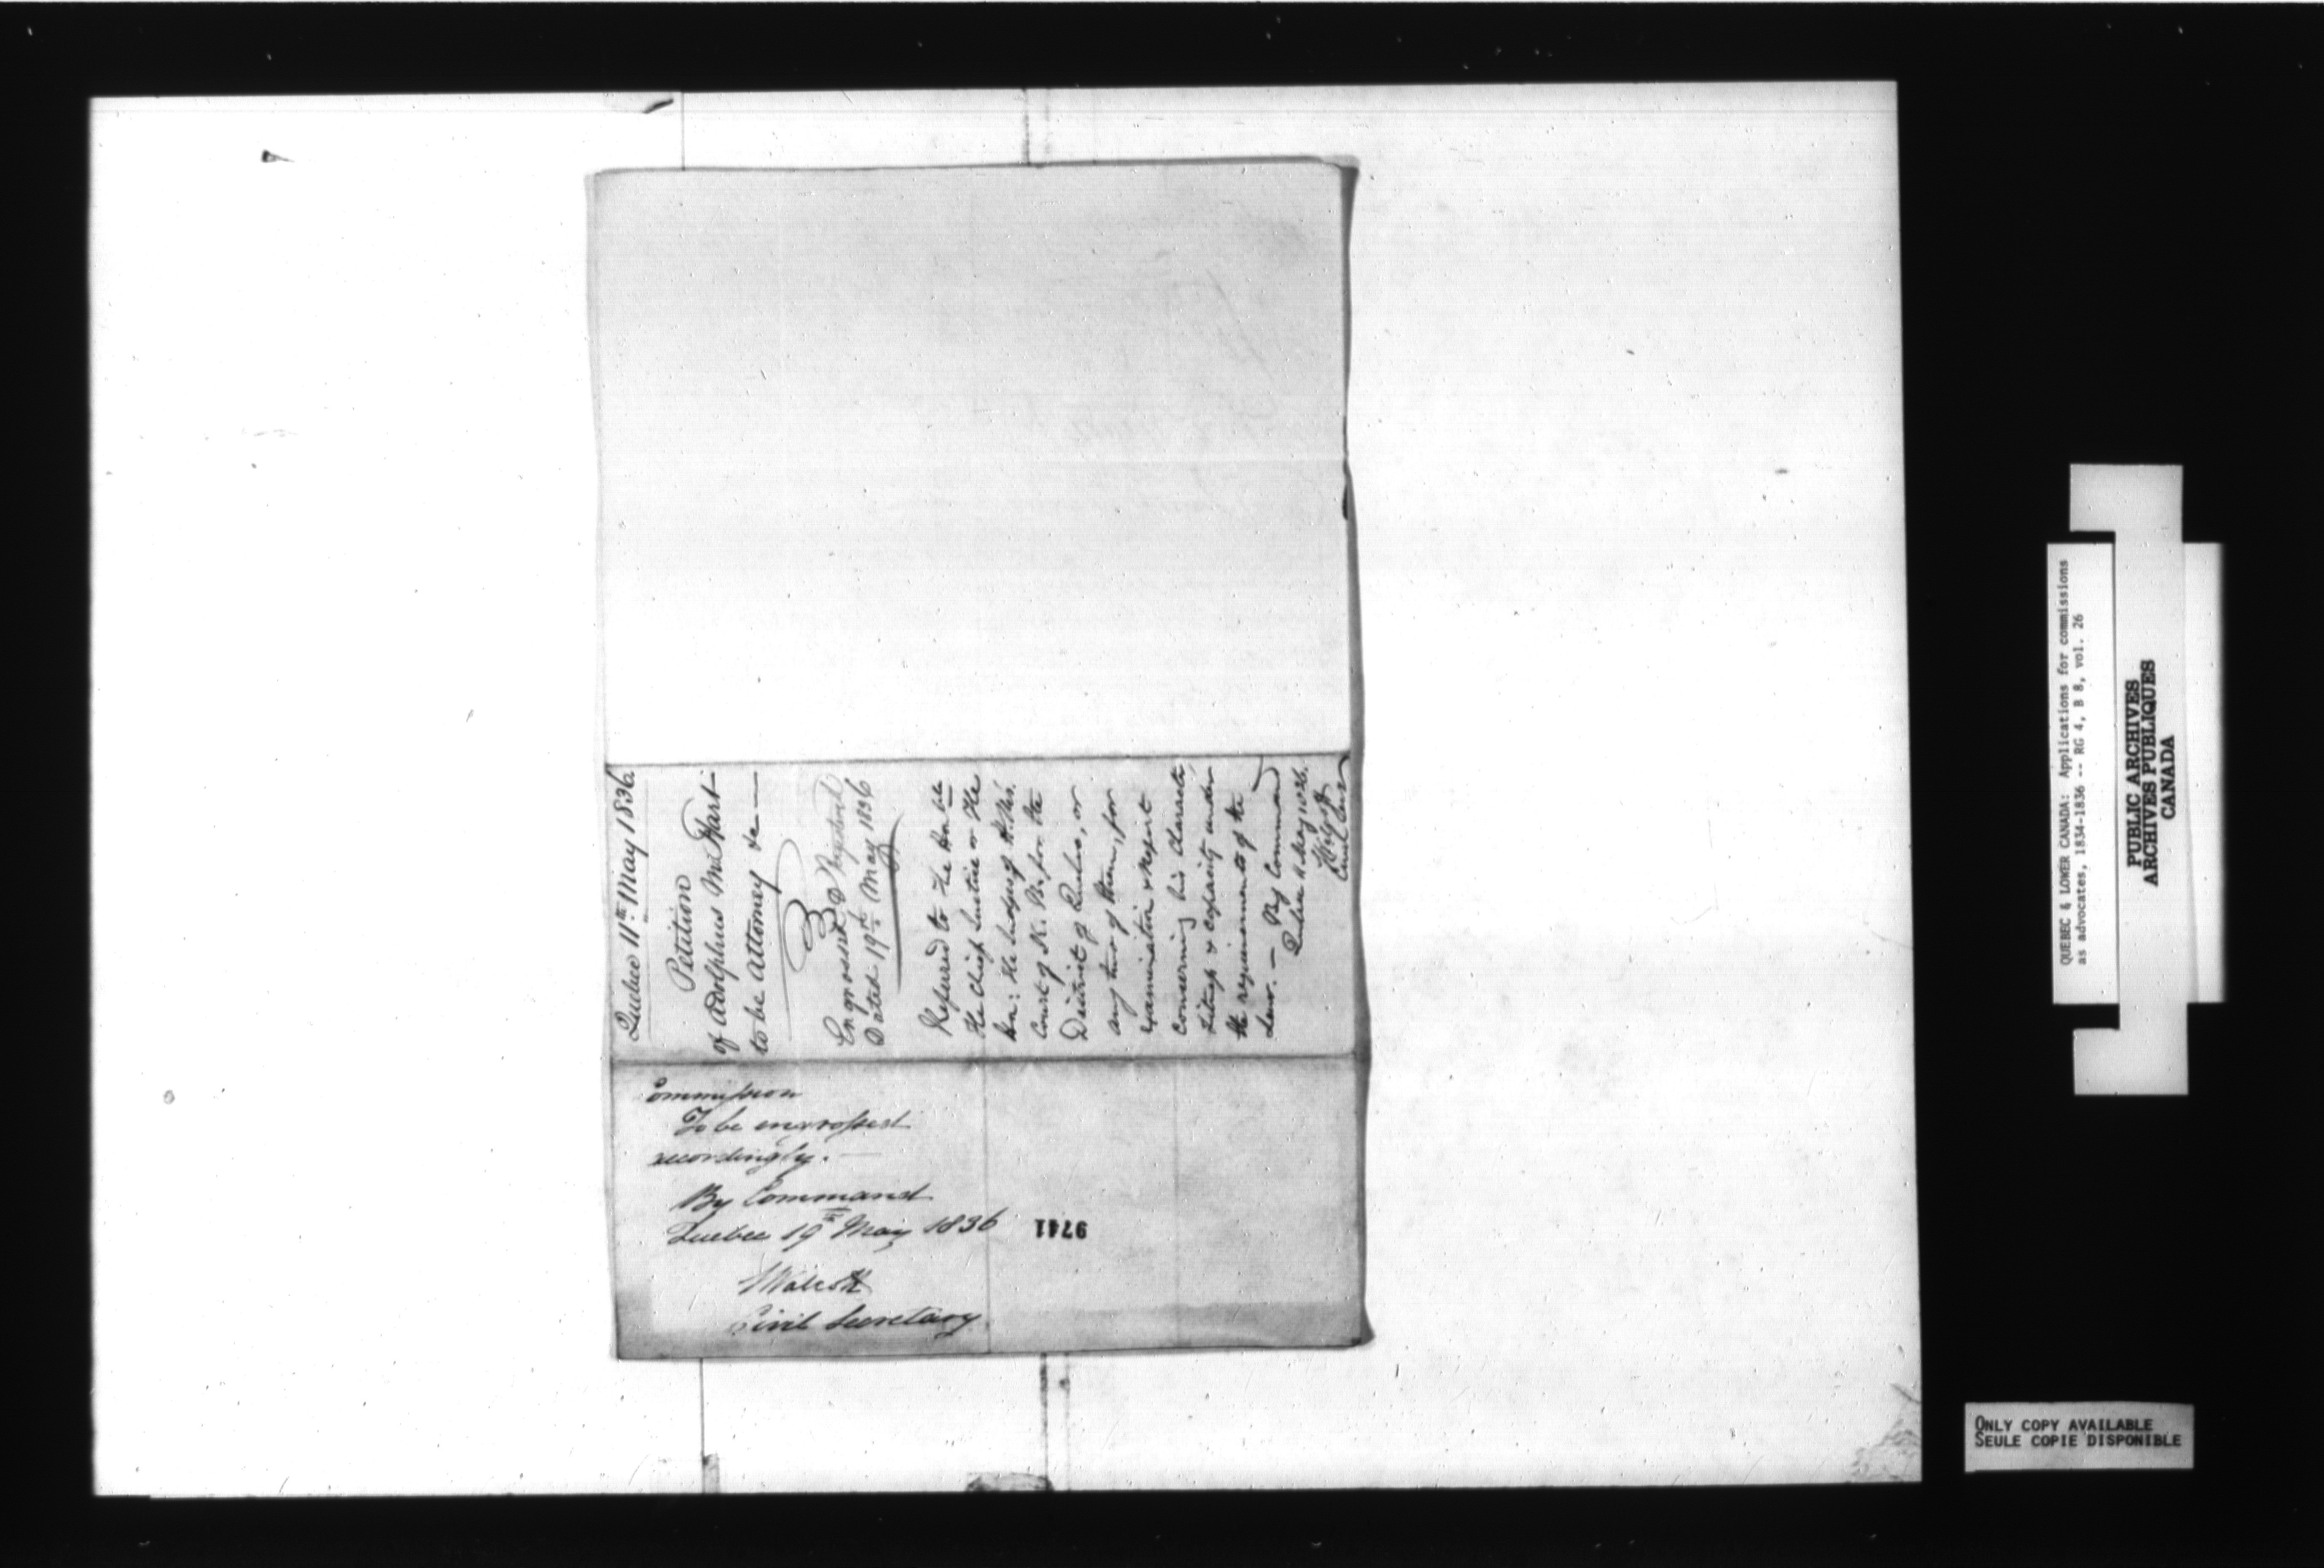 Quebec 11th May 1836
Petition
of Adolphus M. Hart
to be Attorney &c
Engrossed & Registered
Dated 19th May 1836
Referred to the Honble
the Chief Justice or the
Hon: the Judges of H. Ms.
Court of K. B. for the
District of Quebec, or
any two of them, for
Examination & Report
Concerning his Character
Fitness & Capacity under
the requirements of the
Law. — By Command
Quebec 11 May 1836.
Walcott
Civil Secy
Commission
To be engrossed
accordingly. —
By Command
Quebec 19th May 1836
Walcott
Civil Secretary
9741
QUEBEC & LOWER CANADA: Applications for commissions
as advocates, 1834-1836 -- RG 4, B 8, vol. 26
PUBLIC ARCHIVES
ARCHIVES PUBLIQUES
CANADA
ONLY COPY AVAILABLE
SEULE COPIE DISPONIBLE